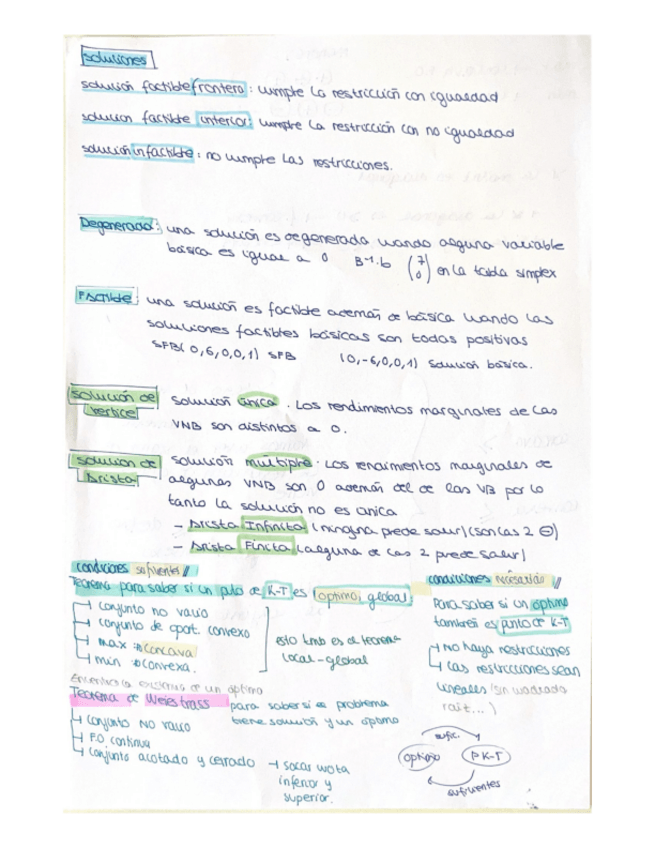 Soluciones
solución factible frontera: cumple la restricción con igualdad
solución factible interior: cumple la restricción con no igualdad
solución infactible: no cumple las restricciones.
Degenerada: una solución es degenerada cuando alguna variable
básica es igual a 0 B-1.b (7 0) en la tabla simplex
Factible: una solución es factible además de básica cuando las
soluciones factibles básicas son todas positivas
SFB(0,6,0,0,1) SFB (0,-6,0,0,1) solución básica.
solución de vertice
solución única. Los rendimientos marginales de las
VNB son distintos a 0.
solución de arista
solución múltiple. Los rendimientos marginales de
algunas VNB son 0 además del de las VB por lo
tanto la solución no es única
- Arista Infinita (ninguna puede salir) (son las 2 ⊖)
- Arista Finita (alguna de las 2 puede salir)
condiciones suficientes //
Teorema para saber si un pto de K-T es óptimo global
conjunto no vacio
conjunto de oport. convexo
max → concava
min → convexa.
esto tmb es el teorema
local-global
condiciones necesarias //
Para saber si un óptimo
también es punto de K-T
no haya restricciones
las restricciones sean
lineales (sin cuadrado
raiz...)
Teorema de Weiestrass
para saber si el problema
tiene solución y un óptimo
conjunto no vacio
F.O continua
conjunto acotado y cerrado → sacas cota
inferior y
superior.
sufic.
óptimo PK-T
suficientes